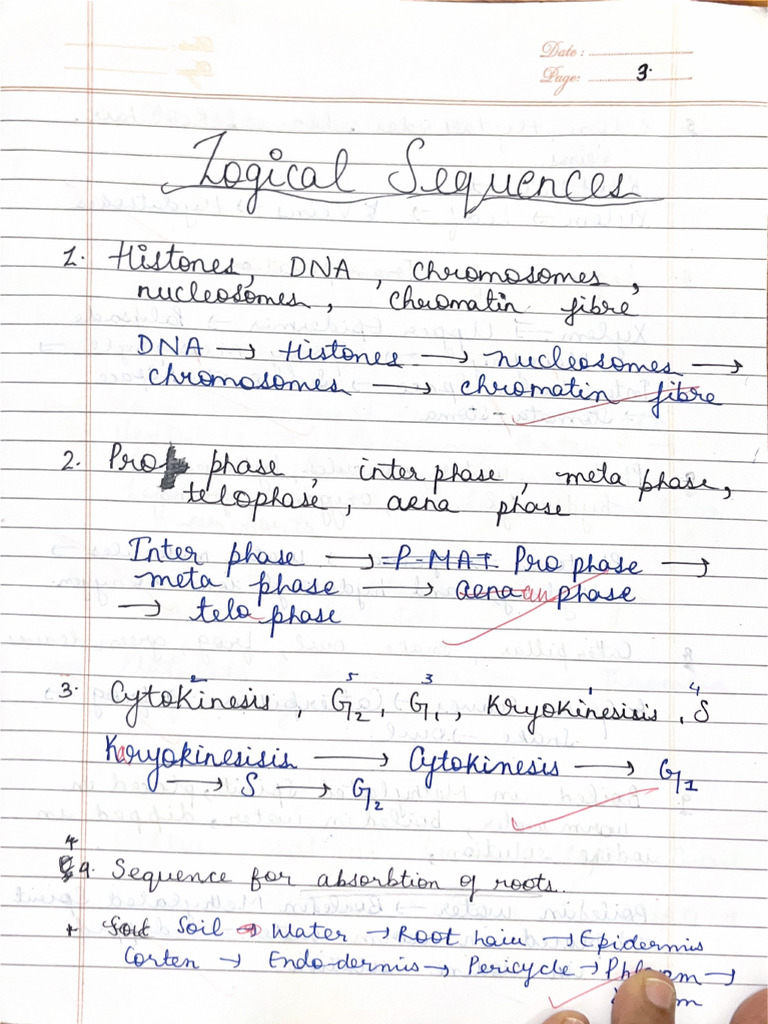 Date :
Page: 3.
Logical Sequences
1. Histones, DNA, chromosomes,
nucleosomes, chromatin fibre
DNA → Histones → nucleosomes →
chromosomes → chromatin fibre
2. Pro phase, inter phase, meta phase,
telophase, aena phase
Inter phase → P-MAT Pro phase →
meta phase → aena an phase
→ telo phase
2 5 3 1 4
3. Cytokinesis, G2, G1, Kryokinesisis, S
Karyokinesisis → Cytokinesis → G1
→ S → G2
4
9. Sequence for absorbtion of roots.
Soil → Water → Root hair → Epidermis
Corten → Endodermis → Pericycle → →